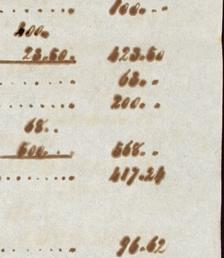 100. -
400.
23.50. 423.50
63. -
200. -
68. -
500. 568. -
417.24
96.62